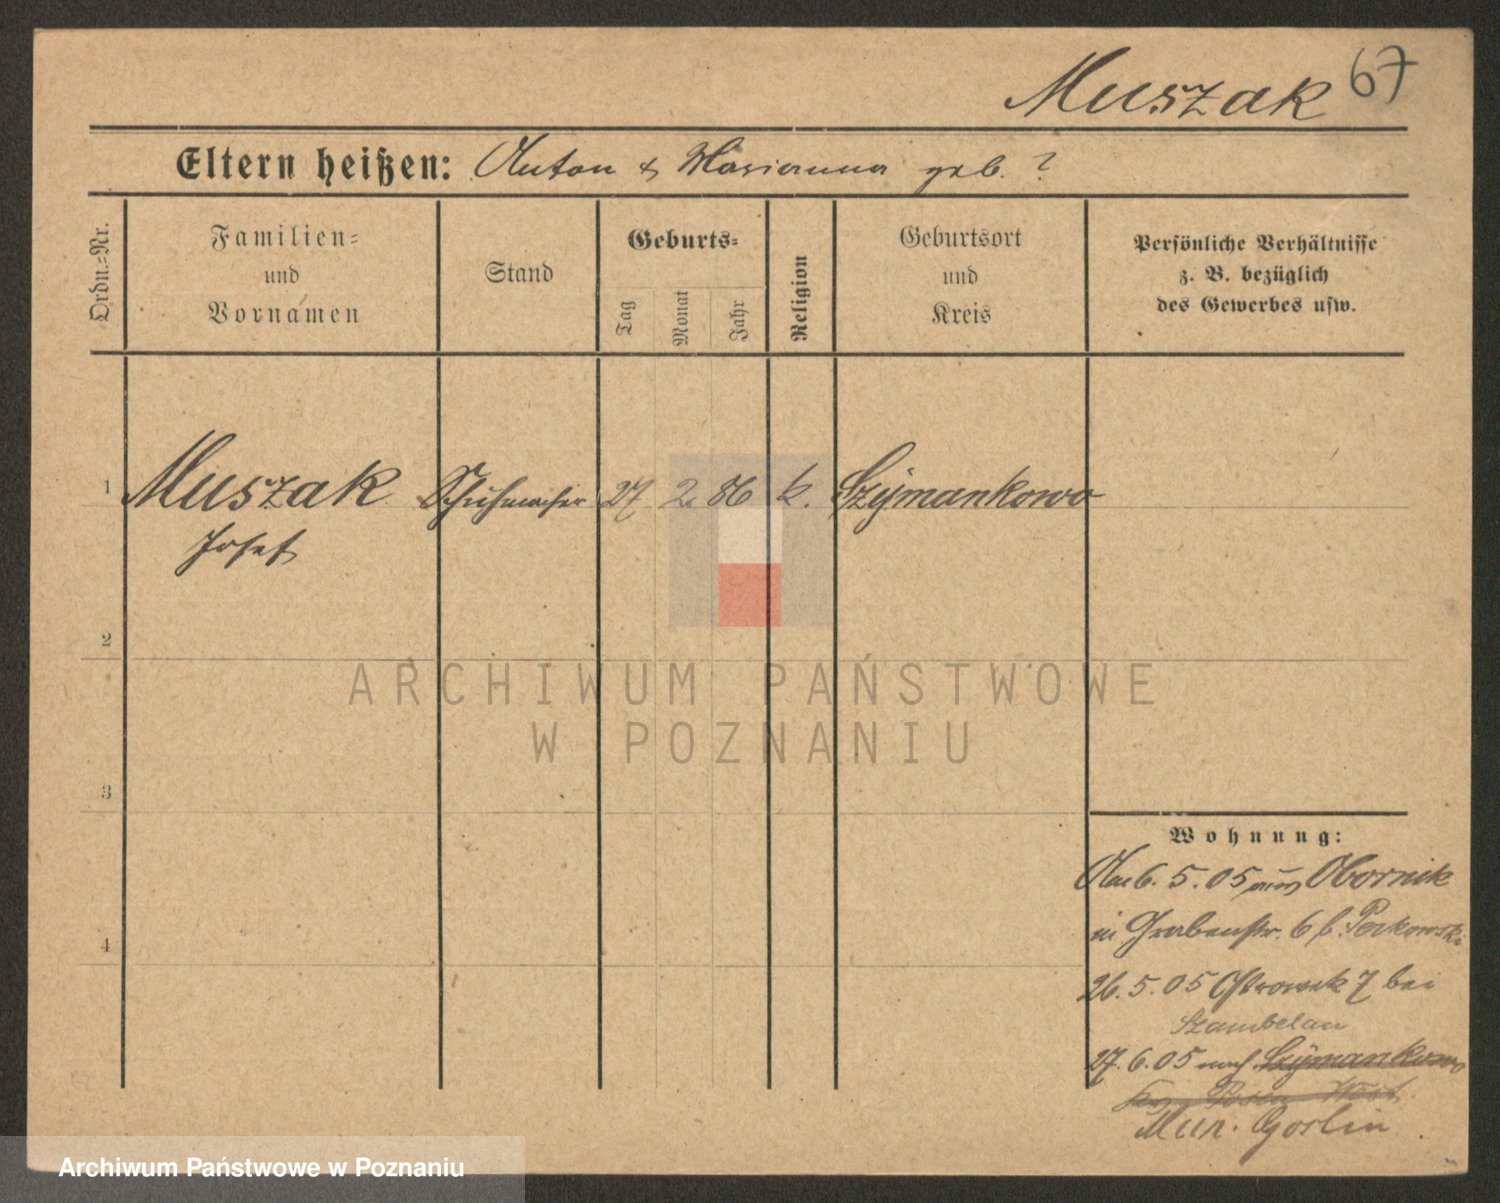 Muszak 67
Eltern heißen: Anton & Marianna geb. ?
Ordn.=Nr.
Familien=
und
Vornamen
Stand
Geburts=
Tag
Monat
Jahr
Religion
Geburtsort
und
Kreis
Persönliche Verhältnisse
z. B. bezüglich
des Gewerbes usw.
1 Muszak Schuhmacher 27 2. 86 k. Szymankowo
Josef
2
3
4
Wohnung:
Am 6. 5. 05 aus Obornik
in Grabenstr. 6 b. Perkowski
26. 5. 05 Ostrowek 7 bei
Szambelan
27. 6. 05 nach Szymankowo
Posen West.
Mur. Goslin
ARCHIWUM PAŃSTWOWE
W POZNANIU
Archiwum Państwowe w Poznaniu